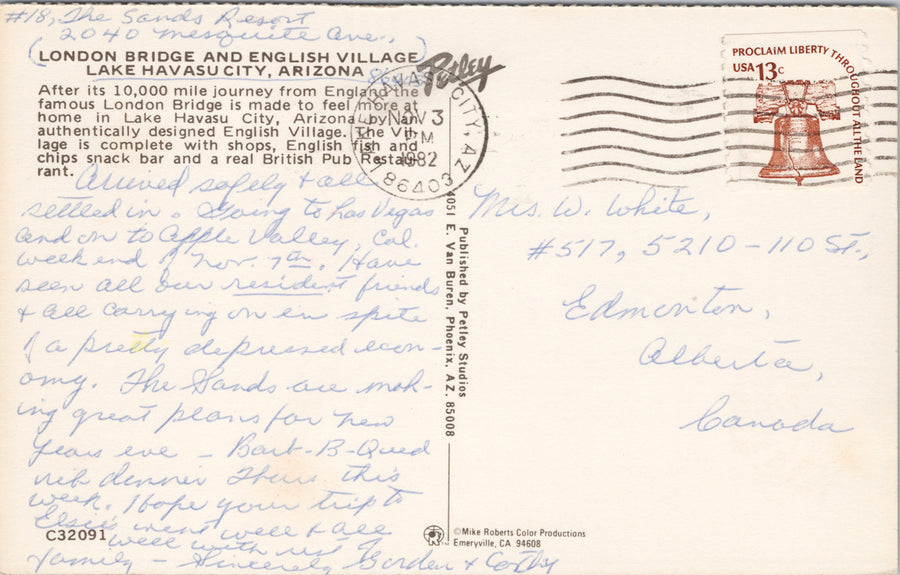 #18, The Sands Resort
2040 Mesquite Ave.,
LONDON BRIDGE AND ENGLISH VILLAGE
LAKE HAVASU CITY, ARIZONA
Petley
After its 10,000 mile journey from England the
famous London Bridge is made to feel more at
home in Lake Havasu City, Arizona by an
authentically designed English Village. The Vil-
lage is complete with shops, English fish and
chips snack bar and a real British Pub Restau-
rant.
Arrived safely & all
settled in. Going to Las Vegas
and on to Apple Valley, Cal.
week end of Nov. 7th. Have
seen all our resident friends
& all carrying on in spite
of a pretty depressed econ-
omy. The Sands are mak-
ing great plans for New
Years eve – Bart-B-Qued
rib dinner Thurs. this
week. Hope your trip to
Elsie's went well & all
well with rest of
family – Sincerely Gordon &
C32091
LAKE HAVASU CITY, AZ
NOV 3
PM
1982
86403
PROCLAIM LIBERTY THROUGHOUT ALL THE LAND
USA 13c
Mrs. W. White,
#517, 5210-110 St.,
Edmonton,
Alberta,
Canada
Published by Petley Studios
4051 E. Van Buren, Phoenix, AZ. 85008
©Mike Roberts Color Productions
Emeryville, CA 94608